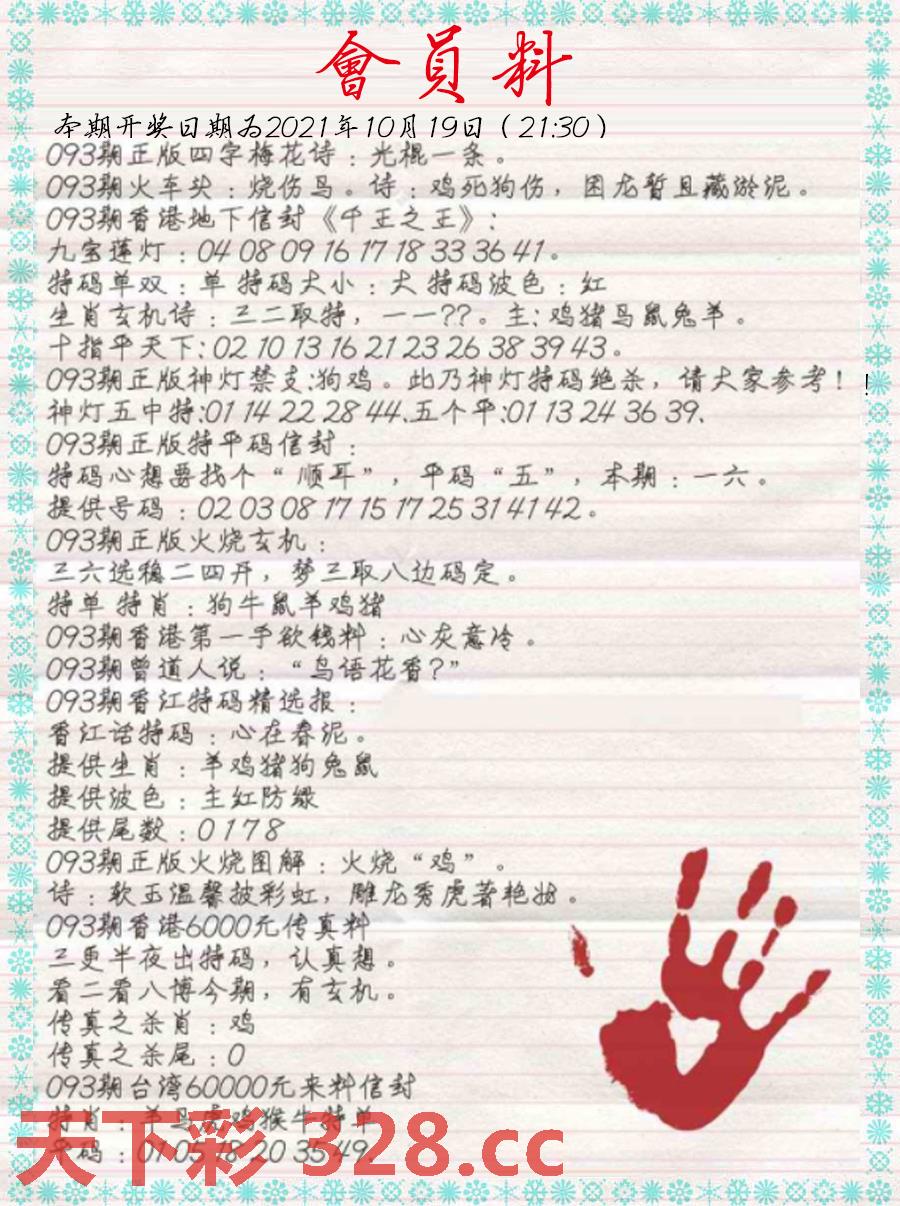 會員料
本期开奖日期为2021年10月19日（21:30）
093期正版四字梅花诗：光棍一条。
093期火车头：烧伤鸟。诗：鸡死狗伤，困龙暂且藏淤泥。
093期香港地下信封《千王之王》：
九宝莲灯：04 08 09 16 17 18 33 36 41。
特码单双：单 特码大小：大 特码波色：红
生肖玄机诗：三二取特，一一??。主: 鸡猪马鼠兔羊。
十指平天下: 02 10 13 16 21 23 26 38 39 43。
093期正版神灯禁支:狗鸡。此乃神灯特码绝杀，请大家参考！!
神灯五中特:01 14 22 28 44.五个平:01 13 24 36 39.
093期正版特平码信封：
特码心想要找个“顺耳”，平码“五”，本期：一六。
提供号码：02 03 08 17 15 17 25 31 41 42。
093期正版火烧玄机：
三六选稳二四开，梦三取八边码定。
特单 特肖：狗牛鼠羊鸡猪
093期香港第一手欲钱料：心灰意冷。
093期曾道人说：“鸟语花香?”
093期香江特码精选报：
香江话特码：心在春泥。
提供生肖：羊鸡猪狗兔鼠
提供波色：主红防绿
提供尾数：0 1 7 8
093期正版火烧图解：火烧“鸡”。
诗：软玉温馨披彩虹，雕龙秀虎著艳妆。
093期香港6000元传真料
三更半夜出特码，认真想。
看二看八博今期，有玄机。
传真之杀肖：鸡
传真之杀尾：0
093期台湾60000元来料信封
特肖：羊马虎鸡猴牛特单
平码：01 05 18 20 35 49.
天下彩 328.cc